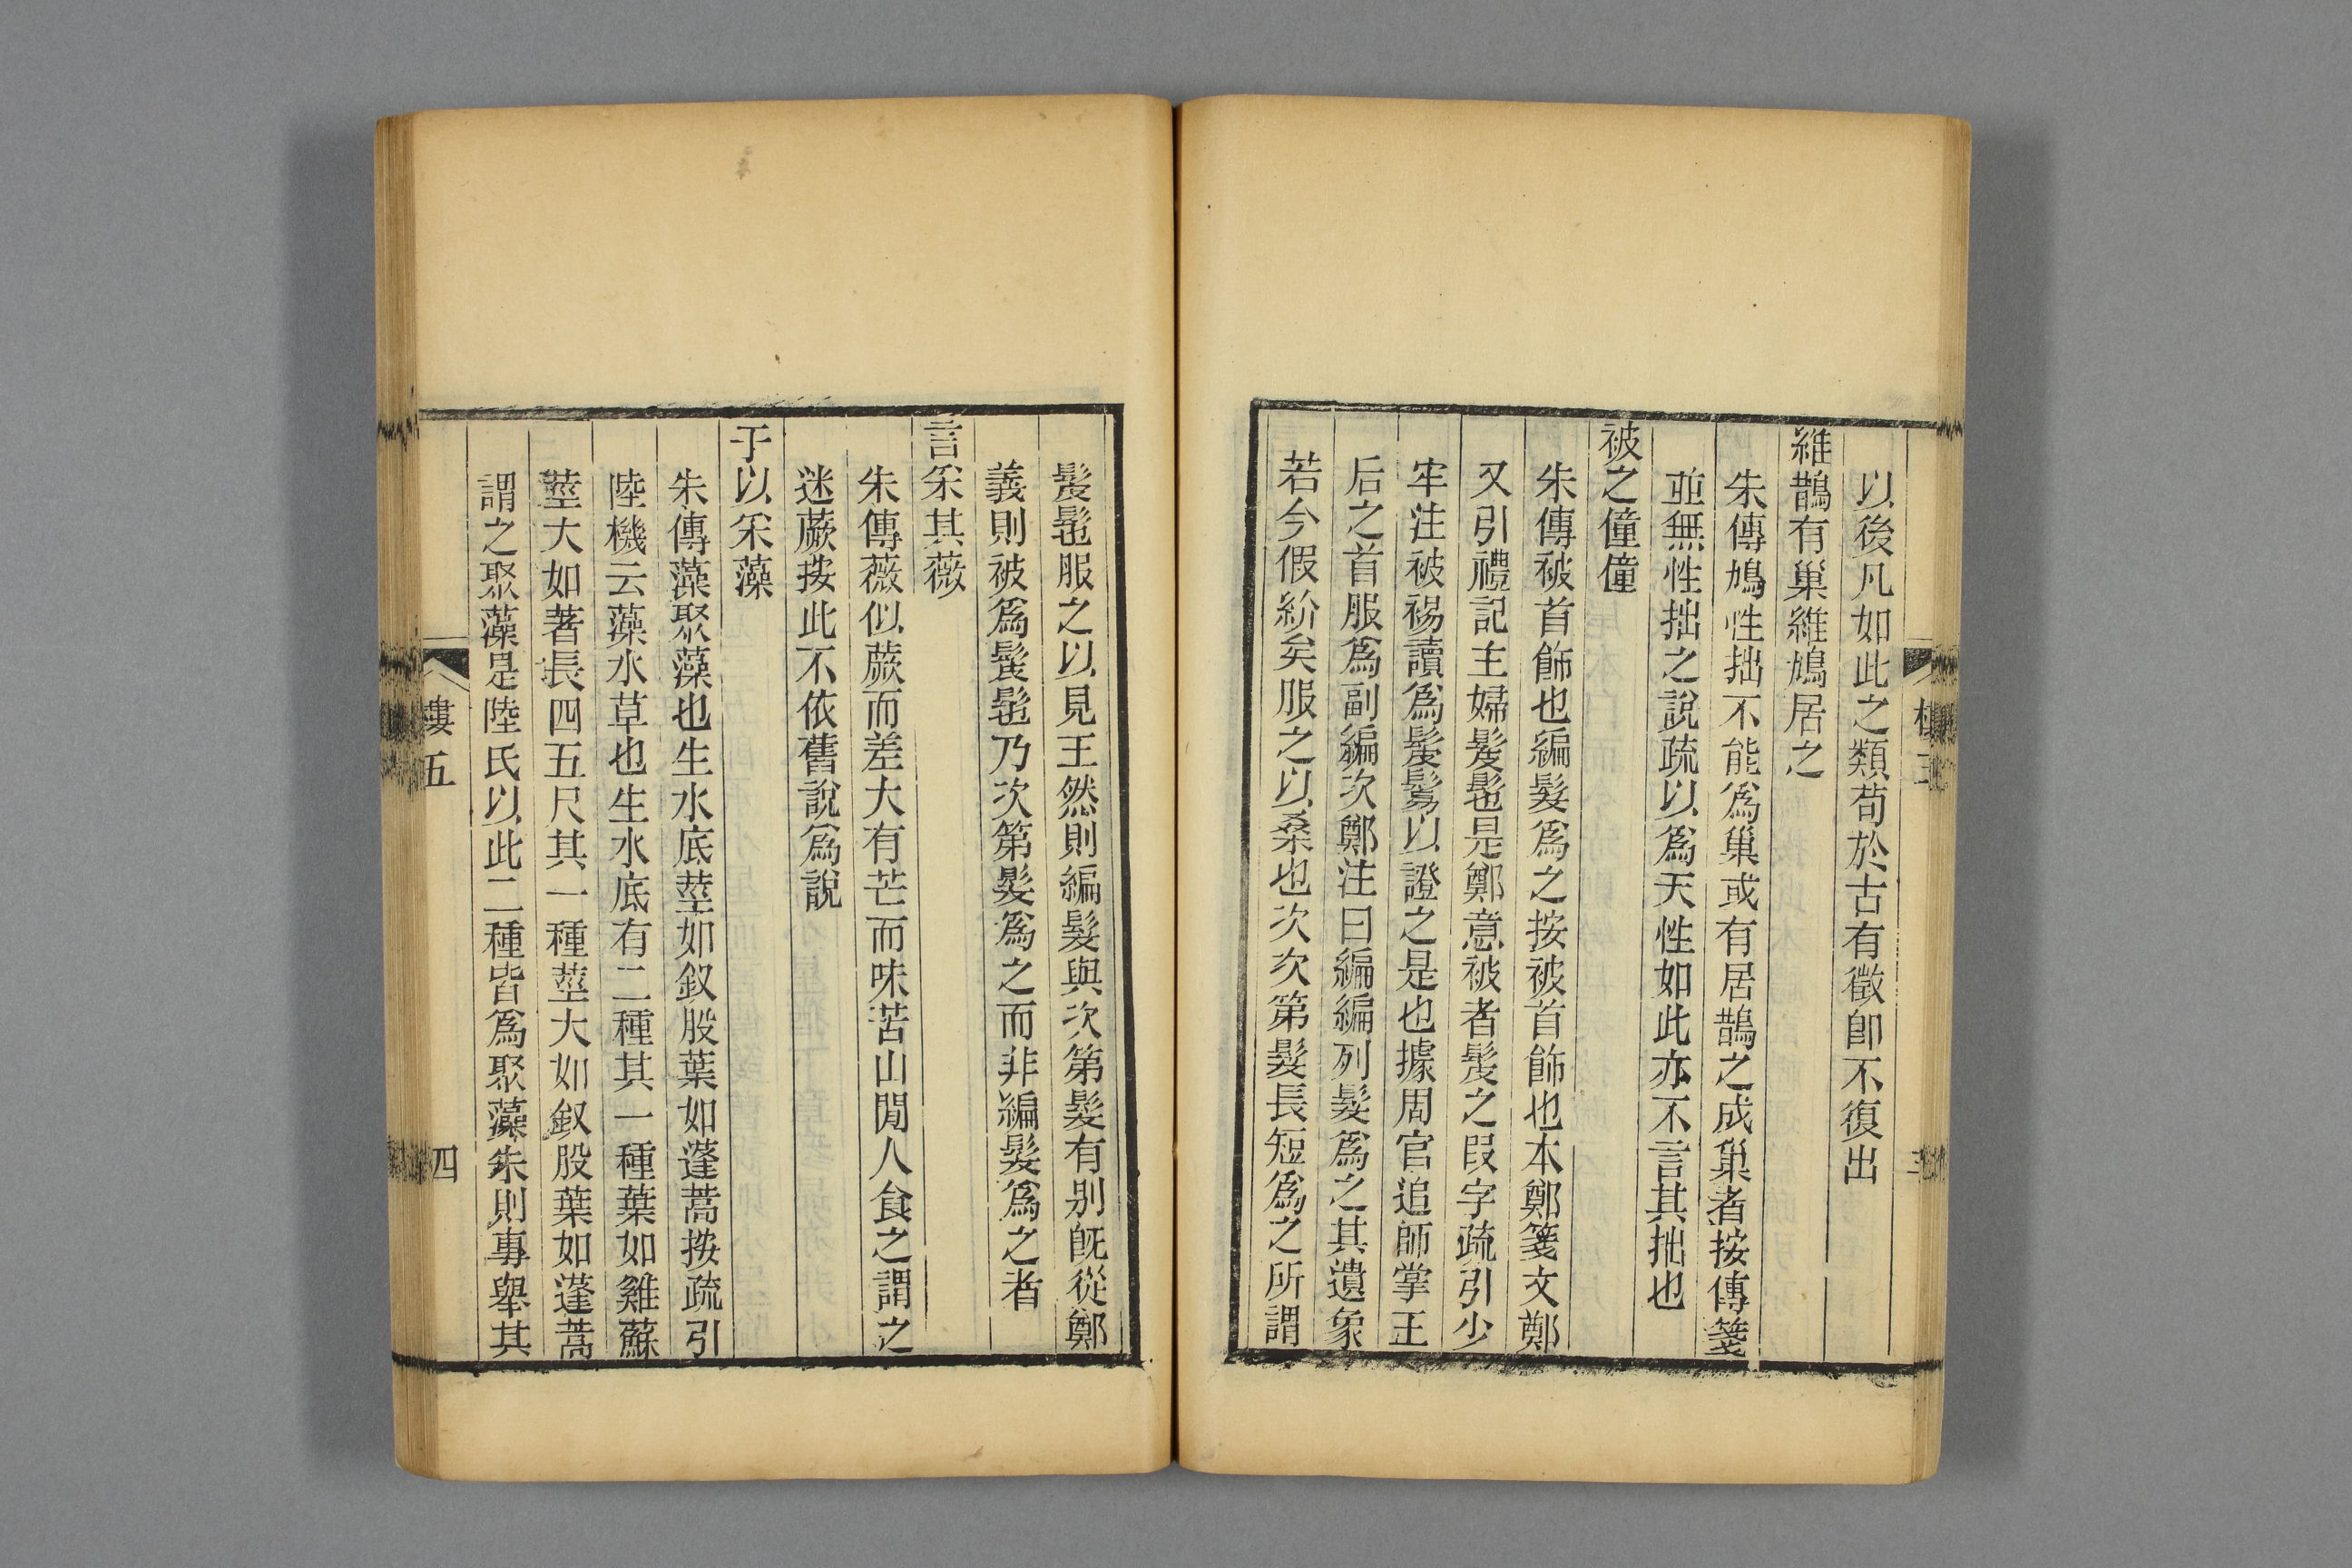 以後凡如此之類苟於古有徵卽不復出
維鵲有巢維鳩居之
朱傳鳩性拙不能爲巢或有居鵲之成巢者按傳箋
並無性拙之說疏以爲天性如此亦不言其拙也
被之僮僮
朱傳被首飾也編髮爲之按被首飾也本鄭箋文鄭
又引禮記主婦髲髢是鄭意被者髲之叚字疏引少
牢注被裼讀爲髲鬄以證之是也據周官追師掌王
后之首服爲副編次鄭注曰編編列髮爲之其遺象
若今假紒矣服之以桑也次次第髮長短爲之所謂
髲髢服之以見王然則編髮與次第髮有別旣從鄭
義則被爲髲髢乃次第髮爲之而非編髮爲之者
言采其薇
朱傳薇似蕨而差大有芒而味苦山閒人食之謂之
迷蕨按此不依舊說爲說
于以采藻
朱傳藻聚藻也生水底莖如釵股葉如蓬蒿按疏引
陸機云藻水草也生水底有二種其一種葉如雞蘇
莖大如著長四五尺其一種莖大如釵股葉如蓬蒿
謂之聚藻是陸氏以此二種皆爲聚藻朱則專舉其
樓五
四